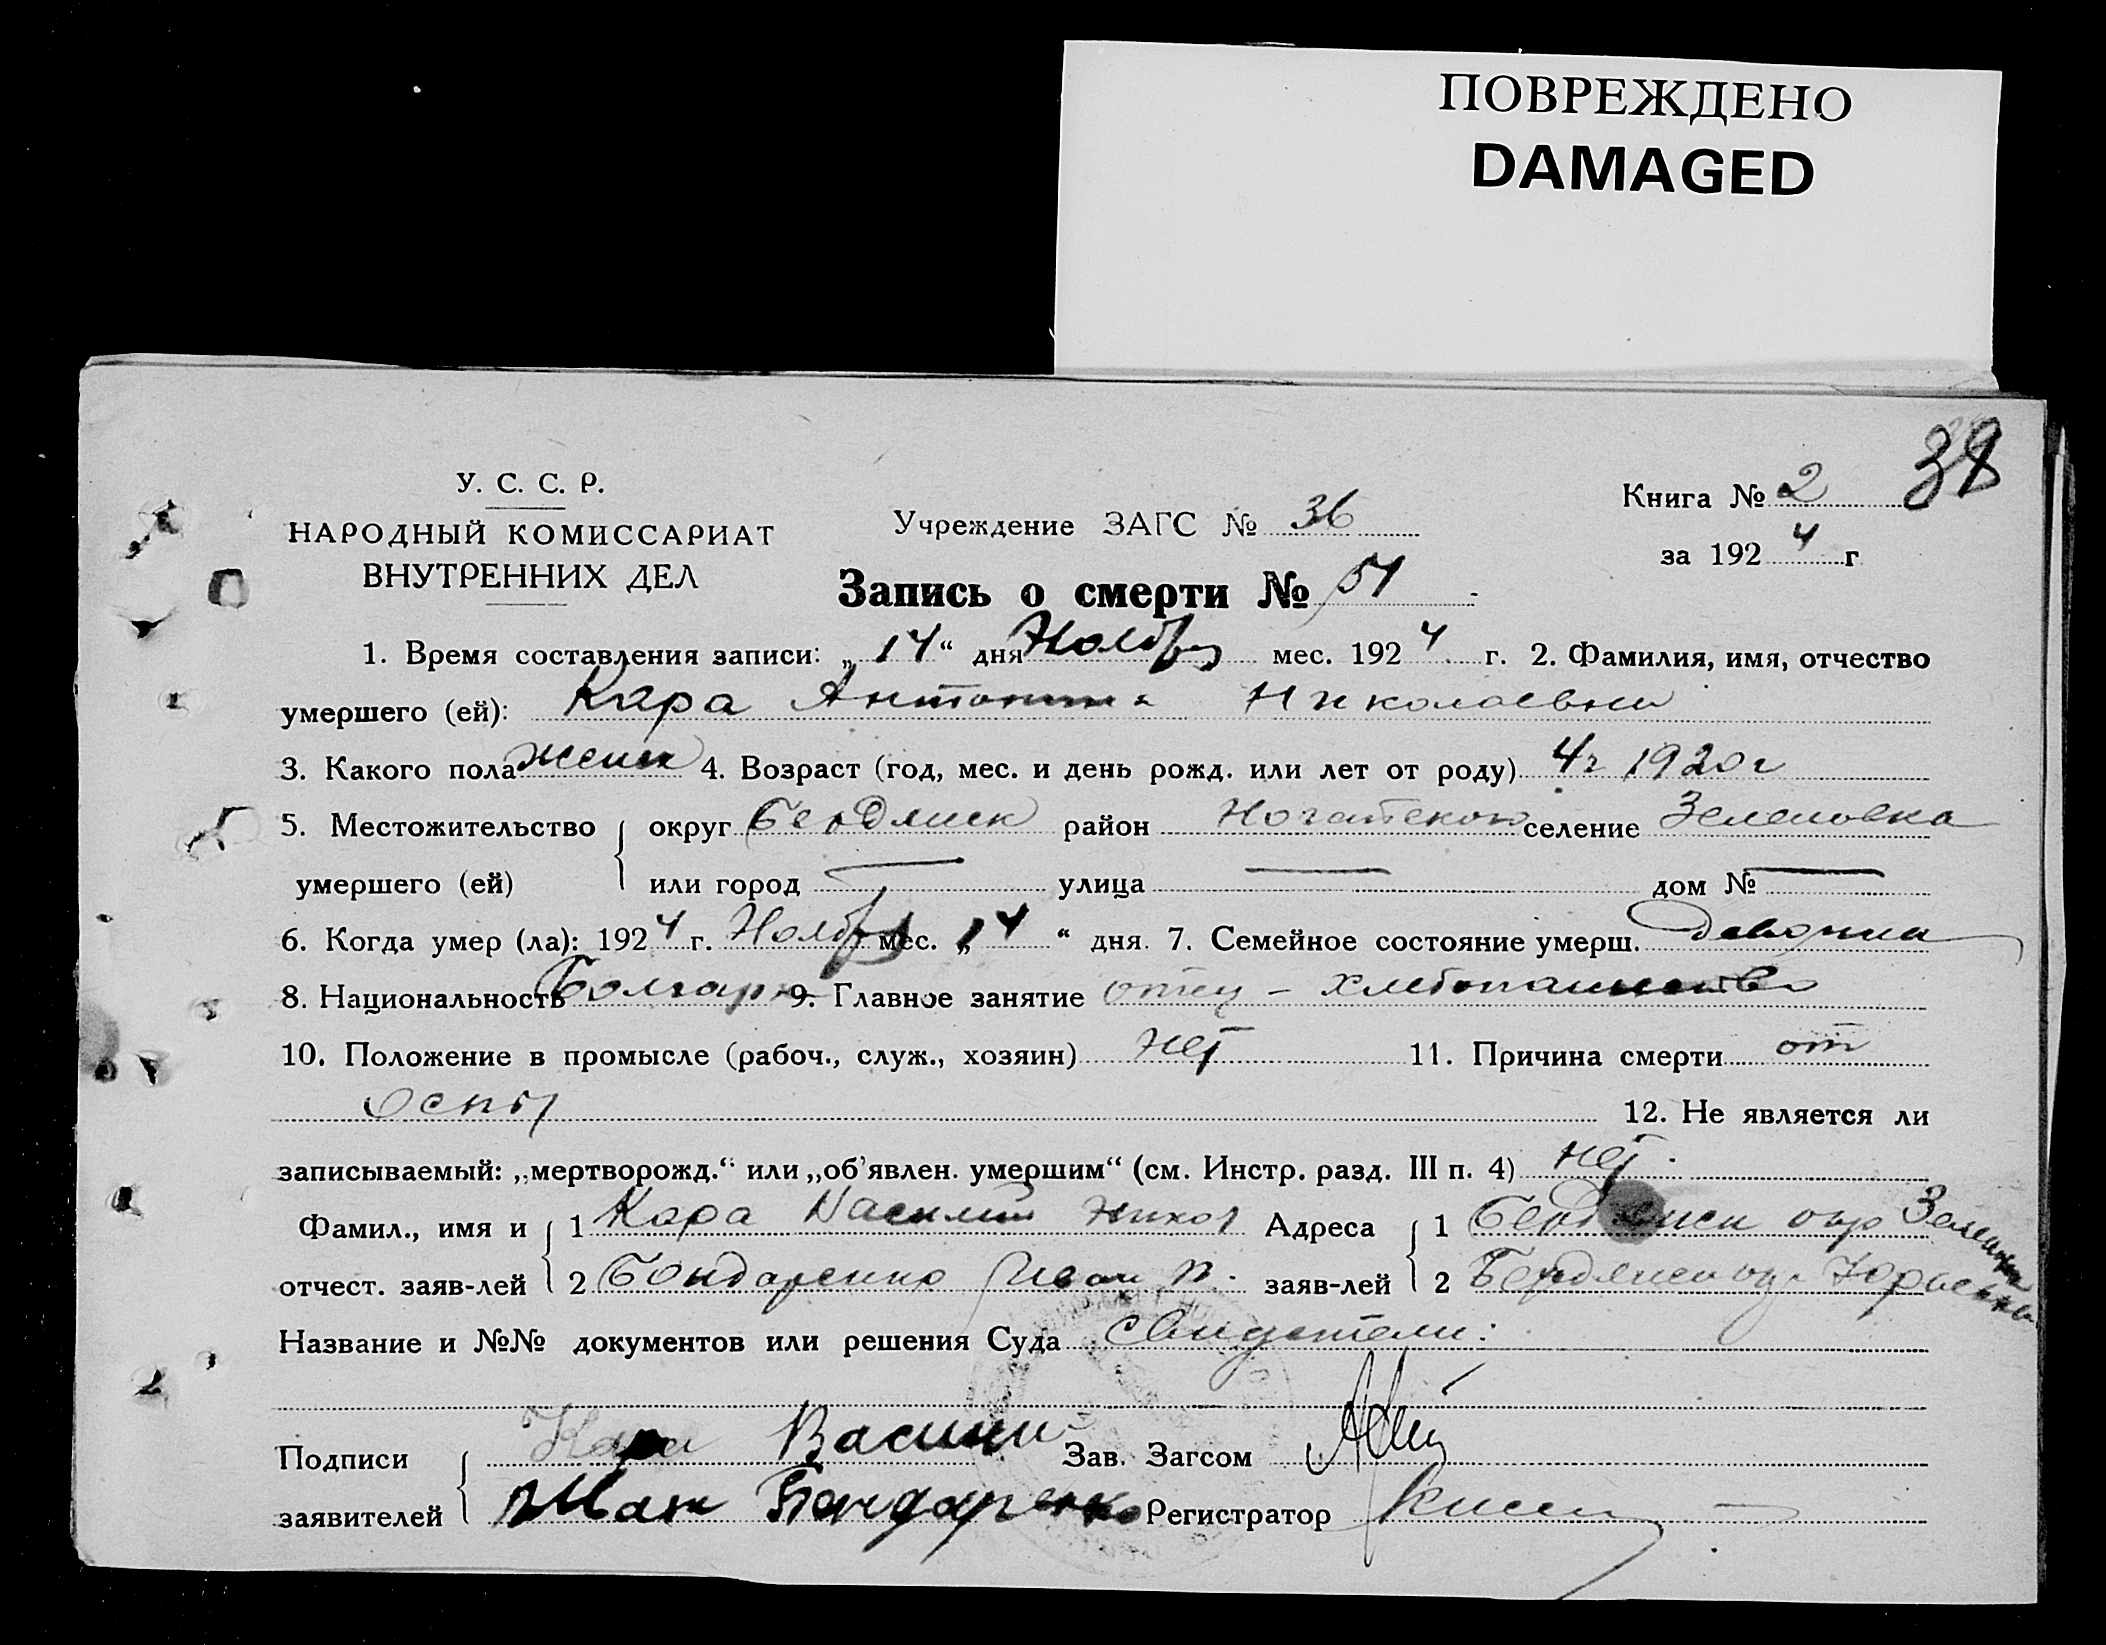 ПОВРЕЖДЕНО
DAMAGED
38
У. С. С. Р.
НАРОДНЫЙ КОМИССАРИАТ
ВНУТРЕННИХ ДЕЛ
Учреждение ЗАГС № 36
Книга № 2
за 1924 г
Запись о смерти № 51
1. Время составления записи: „14“ дня Ноября мес. 1924 г. 2. Фамилия, имя, отчество
умершего (ей): Кара Антонина Николаевна
3. Какого пола женск 4. Возраст (год, мес. и день рожд. или лет от роду) 4г 1920г
5. Местожительство округ Бердянск район Ногайском селение Зеленовка
умершего (ей) или город — улица — дом № —
6. Когда умер (ла): 1924 г. Ноября мес. „14“ дня. 7. Семейное состояние умерш. девочка
8. Национальность Болгарка 9. Главное занятие отец – хлебопашество
10. Положение в промысле (рабоч., служ., хозяин) нет 11. Причина смерти от
оспы 12. Не является ли
записываемый: „мертворожд.“ или „об'явлен. умершим“ (см. Инстр. разд. III п. 4) нет.
Фамил., имя и 1 Кара Василий Никол Адреса 1 Бердянск окр Зеленовка
отчест. заяв-лей 2 Бондаренко Иван заяв-лей 2 Бердянск
Название и №№ документов или решения Суда свидетели:
Подписи Кара Василий Зав. Загсом
заявителей Иван Бондаренко Регистратор